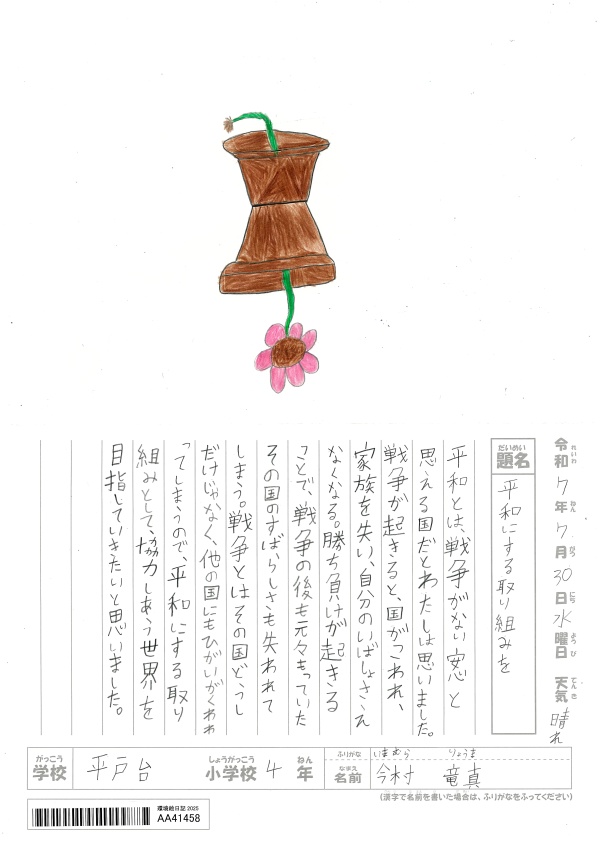 令和7年7月30日水曜日 天気 晴れ
れいわ ねん がつ にち ようび てんき
だいめい
題名 平和にする取り組みを
平和とは、戦争がない安心と
思える国だとわたしは思いました。
戦争が起きると、国がこわれ、
家族を失い、自分のいばしょさえ
なくなる。勝ち負けが起きる
ことで、戦争の後も元々もっていた
その国のすばらしさも失われて
しまう。戦争とはその国どうし
だけじゃなく、他の国にもひがいがくわわ
ってしまうので、平和にする取り
組みとして、協力しあう世界を
目指していきたいと思いました。
がっこう しょうがっこう ねん
学校 平戸台 小学校 4年
ふりがな いまむら りょうま
なまえ
名前 今村 竜真
(漢字で名前を書いた場合は、ふりがなをふってください)
環境絵日記 2025
AA41458